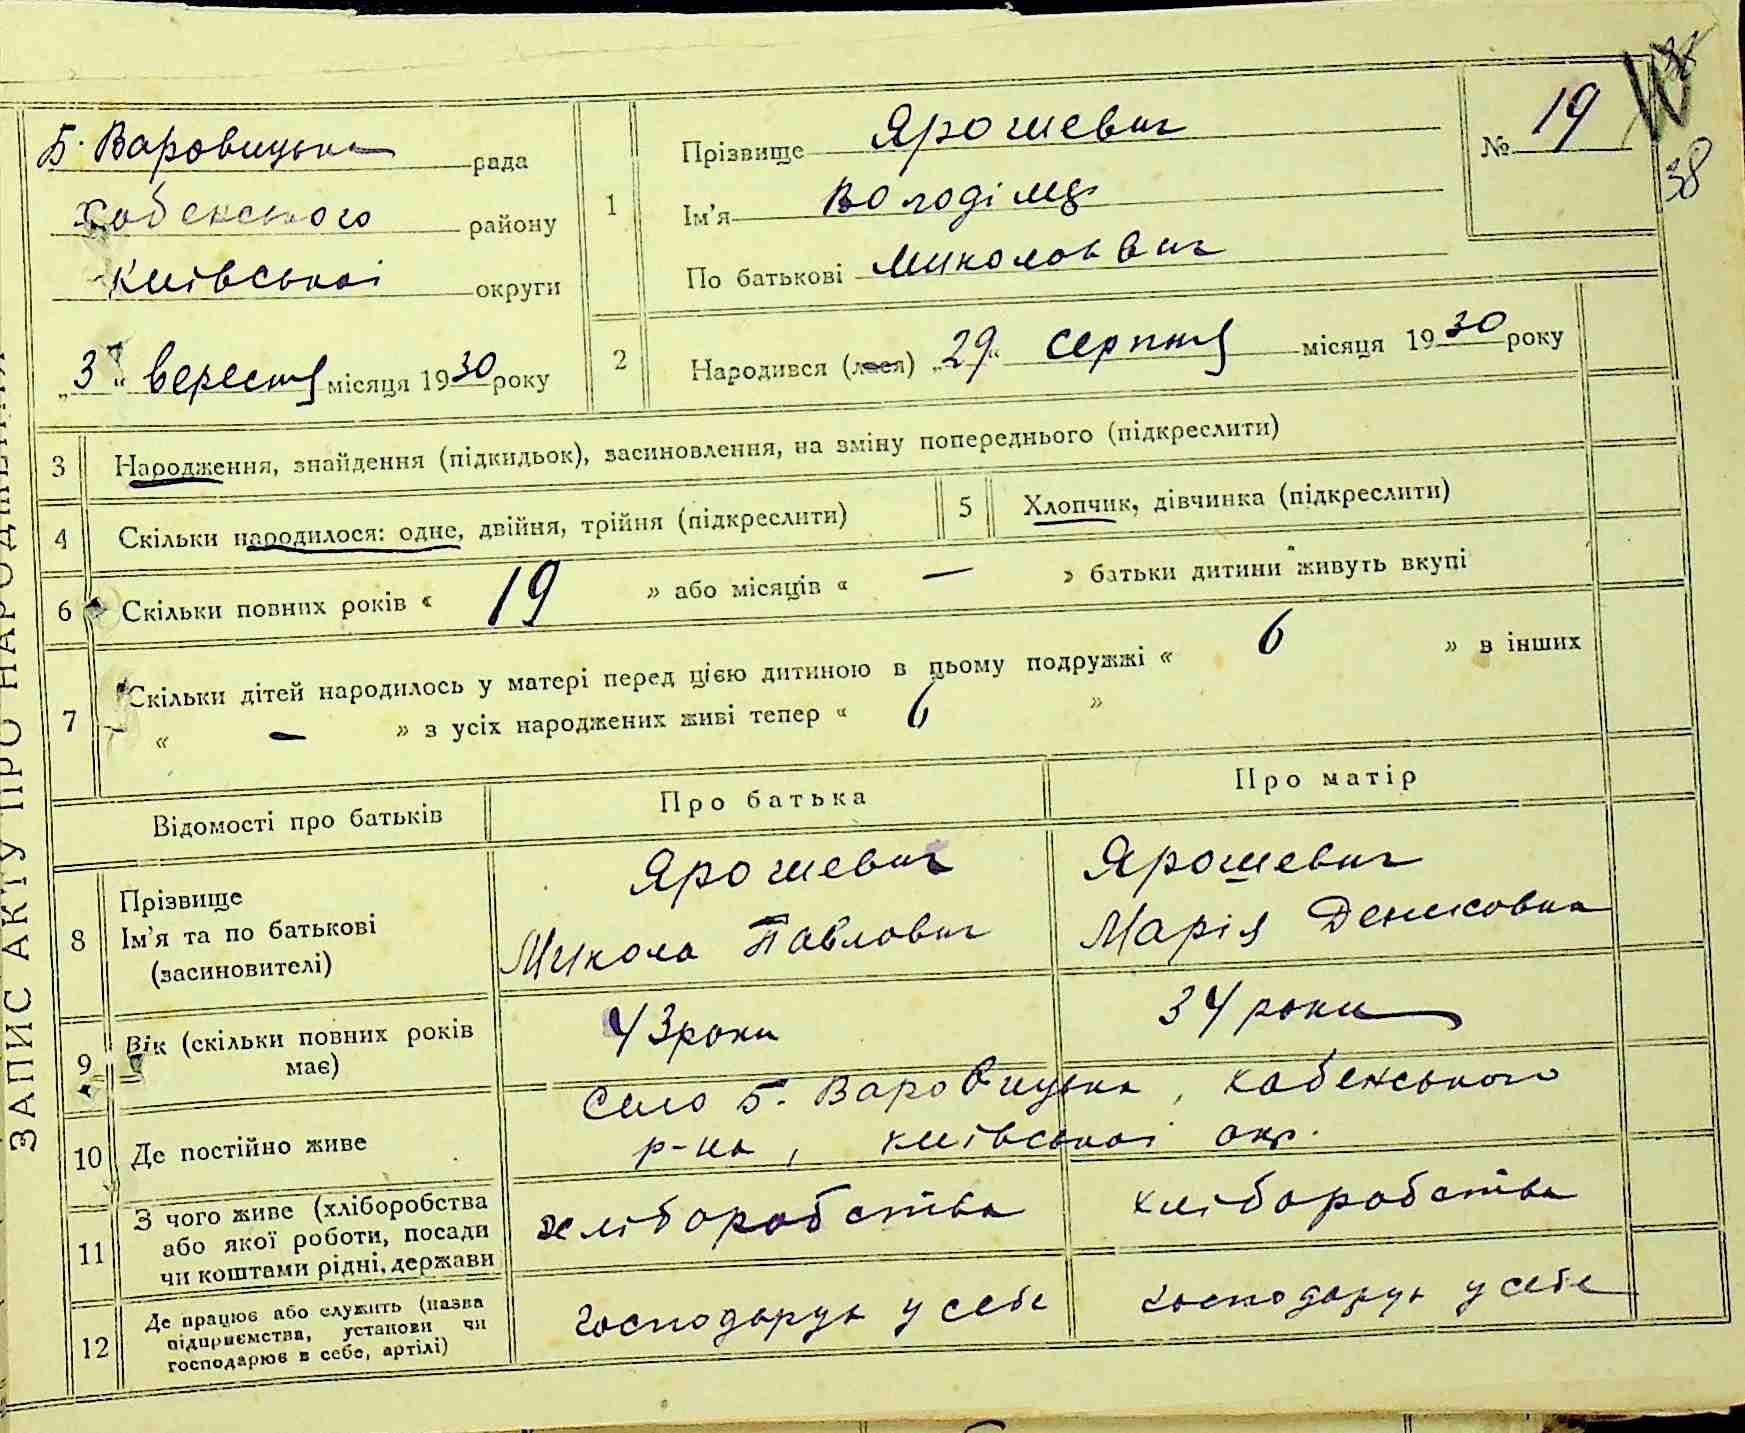 ЗАПИС АКТУ ПРО НАРОДЖЕННЯ
Б. Варовицька рада
Хабенського району
Київської округи
„3“ вересня місяця 1930 року
1 Прізвище Ярошевич
Ім'я Володімер
По батькові Миколаївич
№ 19
38
2 Народився (лася) „29“ серпня місяця 1930 року
3 Народження, знайдення (підкидьок), засиновлення, на зміну попереднього (підкреслити)
4 Скільки народилося: одне, двійня, трійня (підкреслити) 5 Хлопчик, дівчинка (підкреслити)
6 Скільки повних років « 19 » або місяців « — » батьки дитини живуть вкупі
7 Скільки дітей народилось у матері перед цією дитиною в цьому подружжі « 6 » в інших
« — » з усіх народжених живі тепер « 6 »
Відомості про батьків Про батька Про матір
8 Прізвище Ярошевич Ярошевич
Ім'я та по батькові Микола Павлович Марія Денисовна
(засиновителі)
9 Вік (скільки повних років має) 43 роки 34 роки
10 Де постійно живе Село Б. Варовицька, Хабенського
р-на, Київської окр.
11 З чого живе (хліборобства хліборобства хліборобства
або якої роботи, посади
чи коштами рідні, держави
12 Де працює або служить (назва Господарує у себе Господарує у себе
підприємства, установи чи
господарює в себе, артілі)